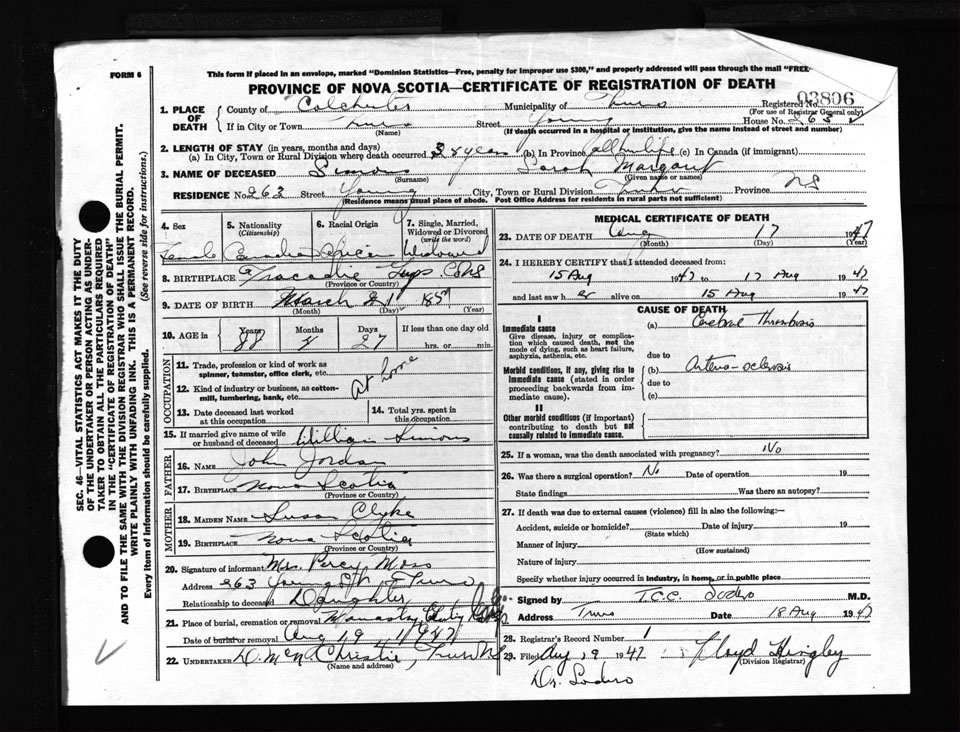 FORM 6
This form if placed in an envelope, marked "Dominion Statistics—Free, penalty for improper use $300," and properly addressed will pass through the mail "FREE
PROVINCE OF NOVA SCOTIA—CERTIFICATE OF REGISTRATION OF DEATH
03806
1. PLACE OF DEATH
County of Colchester Municipality of Truro Registered No.
(For use of Registrar General only)
If in City or Town Truro Street Young House No. 263
(Name) (If death occurred in a hospital or institution, give the name instead of street and number)
2. LENGTH OF STAY (in years, months and days)
(a) In City, Town or Rural Division where death occurred 38 years (b) In Province all her life (c) In Canada (if immigrant)
3. NAME OF DECEASED Simons Sarah Margaret
(Surname) (Given name or names)
RESIDENCE No. 263 Street Young City, Town or Rural Division Truro Province NS
(Residence means usual place of abode. Post Office Address for residents in rural parts not sufficient)
4. Sex
5. Nationality (Citizenship)
6. Racial Origin
7. Single, Married, Widowed or Divorced (write the word)
Female Canadian African Widowed
8. BIRTHPLACE Tracadie Guys Co NS
(Province or Country)
9. DATE OF BIRTH March 21 185
(Month) (Day) (Year)
10. AGE in
Years Months Days If less than one day old
88 4 27 hrs. or min.
OCCUPATION
11. Trade, profession or kind of work as spinner, teamster, office clerk, etc.
12. Kind of industry or business, as cotton-mill, lumbering, bank, etc.
At home
13. Date deceased last worked at this occupation
14. Total yrs. spent in this occupation
15. If married give name of wife or husband of deceased William Simons
FATHER
16. NAME John Jordan
17. BIRTHPLACE Nova Scotia
(Province or Country)
MOTHER
18. MAIDEN NAME Susan Clyke
19. BIRTHPLACE Nova Scotia
(Province or Country)
20. Signature of informant Mrs. Percy Moss
Address 263 Young St Truro
Relationship to deceased Daughter
21. Place of burial, cremation or removal Monastry
Date of burial or removal Aug 19 1947
22. UNDERTAKER D. McN Christie, Truro NS
(Name and address)
MEDICAL CERTIFICATE OF DEATH
23. DATE OF DEATH Aug 17 1947
(Month) (Day) (Year)
24. I HEREBY CERTIFY that I attended deceased from:
15 Aug 1947 to 17 Aug 1947
and last saw her alive on 15 Aug 1947
CAUSE OF DEATH
I
Immediate cause
Give disease, injury or complication which caused death, not the mode of dying, such as heart failure, asphyxia, asthenia, etc.
(a) Cerebral Thrombosis
due to
Morbid conditions, if any, giving rise to immediate cause (stated in order proceeding backwards from immediate cause).
(b) Arterio-sclerosis
due to
(c)
II
Other morbid conditions (if important) contributing to death but not causally related to immediate cause.
25. If a woman, was the death associated with pregnancy? No
26. Was there a surgical operation? No Date of operation 19
State findings Was there an autopsy?
27. If death was due to external causes (violence) fill in also the following:—
Accident, suicide or homicide? Date of injury 19
(State which)
Manner of injury
(How sustained)
Nature of injury
Specify whether injury occurred in industry, in home, or in public place
Signed by T.C.C. Sodero M.D.
Address Truro Date 18 Aug 1947
28. Registrar's Record Number 1
29. Filed Aug 19 1947 Floyd Hingley
(Division Registrar)
Dr. Sodero
SEC. 46—VITAL STATISTICS ACT MAKES IT THE DUTY
OF THE UNDERTAKER OR PERSON ACTING AS UNDER-
TAKER TO OBTAIN ALL THE PARTICULARS REQUIRED
IN THE "CERTIFICATE OF REGISTRATION OF DEATH"
AND TO FILE THE SAME WITH THE DIVISION REGISTRAR WHO SHALL ISSUE THE BURIAL PERMIT.
WRITE PLAINLY WITH UNFADING INK. THIS IS A PERMANENT RECORD.
Every item of information should be carefully supplied. (See reverse side for instructions.)